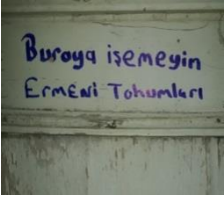 Buraya işemeyin
Ermeni Tohumları